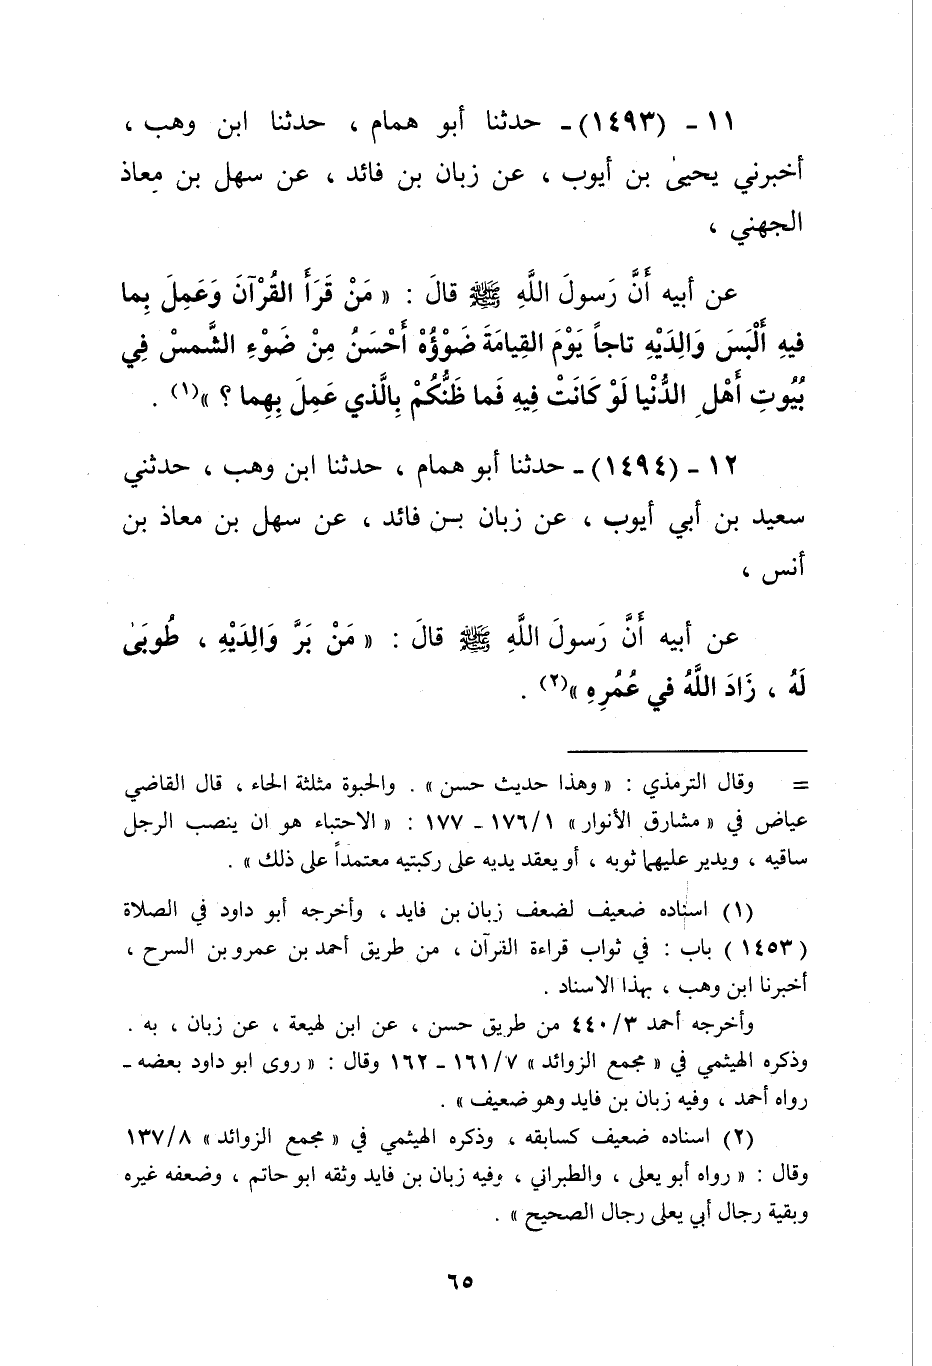 ١١ - (١٤٩٣) - حدثنا أبو همام ، حدثنا ابن وهب ،
أخبرني يحيىٰ بن أيوب ، عن زبان بن فائد ، عن سهل بن معاذ
الجهني ،
عن أبيه أَنَّ رَسولَ اللَّهِ ﷺ قالَ : « مَنْ قَرَأَ القُرْآنَ وَعَمِلَ بِما
فيهِ أُلْبَسَ وَالِدَيْهِ تاجاً يَوْمَ القِيامَةَ ضَوْؤُهُ أَحْسَنُ مِنْ ضَوْءِ الشَّمسْ فِي
بُيُوتِ أَهْلِ الدُّنْيا لَوْ كَانَتْ فِيهِ فَما ظَنُّكُمْ بِالَّذي عَمِلَ بِهِما ؟ »(١) .
١٢ - (١٤٩٤) - حدثنا أبو همام ، حدثنا ابن وهب ، حدثني
سعيد بن أبي أيوب ، عن زبان بن فائد ، عن سهل بن معاذ بن
أنس ،
عن أبيه أَنَّ رَسولَ اللَّهِ ﷺ قالَ : « مَنْ بَرَّ وَالِدَيْهِ ، طُوبَىٰ
لَهُ ، زَادَ اللَّهُ في عُمُرِهِ »(٢) .
= وقال الترمذي : « وهذا حديث حسن » . والحبوة مثلثة الحاء ، قال القاضي
عياض في « مشارق الأنوار » ١٧٦/١ - ١٧٧ : « الاحتباء هو ان ينصب الرجل
ساقيه ، ويدير عليهما ثوبه ، أو يعقد يديه على ركبتيه معتمداً على ذلك » .
(١) اسناده ضعيف لضعف زبان بن فايد ، وأخرجه أبو داود في الصلاة
(١٤٥٣ ) باب : في ثواب قراءة القرآن ، من طريق أحمد بن عمرو بن السرح ،
أخبرنا ابن وهب ، بهذا الاسناد .
وأخرجه أحمد ٤٤٠/٣ من طريق حسن ، عن ابن لهيعة ، عن زبان ، به .
وذكره الهيثمي في « مجمع الزوائد » ١٦١/٧ - ١٦٢ وقال : « روى ابو داود بعضه -
رواه أحمد ، وفيه زبان بن فايد وهو ضعيف » .
(٢) اسناده ضعيف كسابقه ، وذكره الهيثمي في « مجمع الزوائد » ١٣٧/٨
وقال : « رواه أبو يعلى ، والطبراني ، وفيه زبان بن فايد وثقه ابو حاتم ، وضعفه غيره
وبقية رجال أبي يعلى رجال الصحيح » .
٦٥